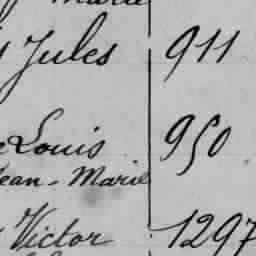 Marie
Jules 911
Louis 950
Jean-Marie
Victor 1297